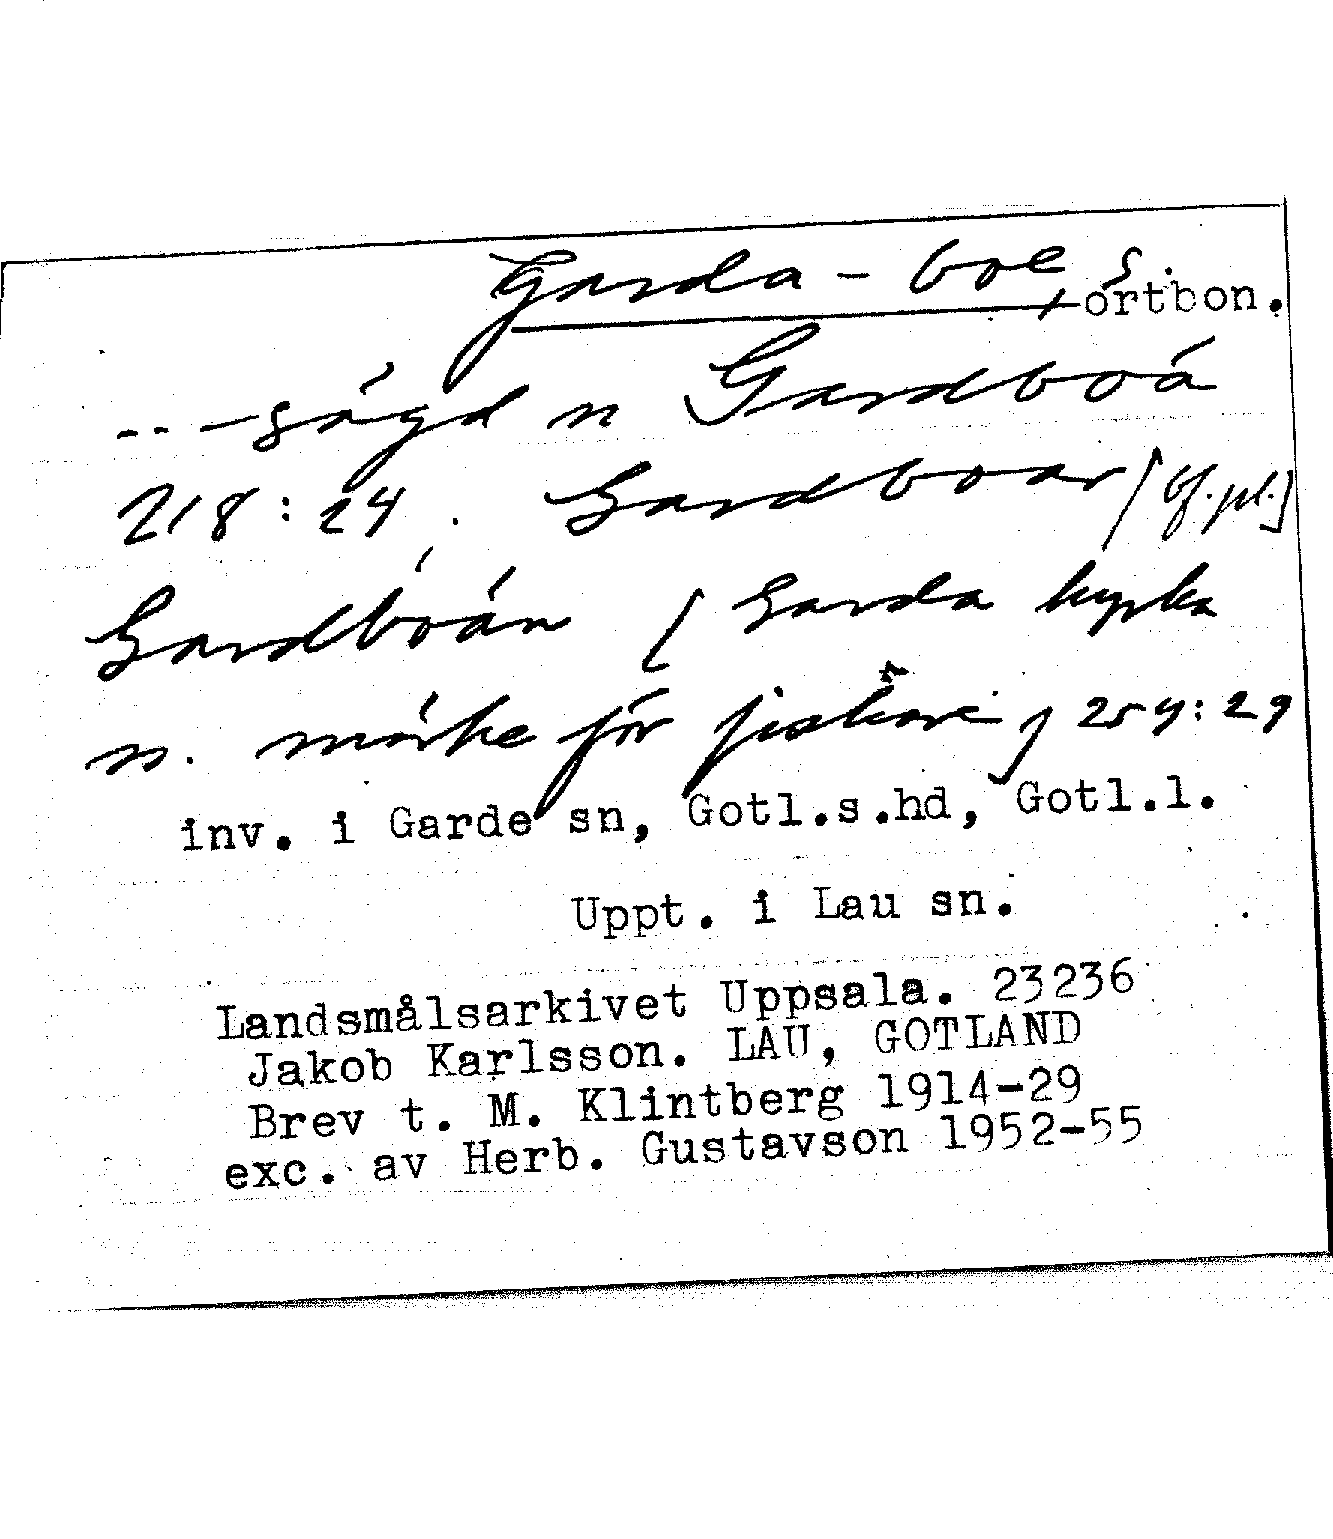 Garda-boe, s. ortbon.
--- sägd n Gardboá
218:24. Gardboar [bf.pl.]
Gardbóán [Garda kyrka
n. märke för fiskare] 254:29
inv. i Garde sn, Gotl.s.hd, Gotl.l.
Uppt. i Lau sn.
Landsmålsarkivet Uppsala. 23236
Jakob Karlsson. LAU, GOTLAND
Brev t. M. Klintberg 1914-29
exc. av Herb. Gustavson 1952-55